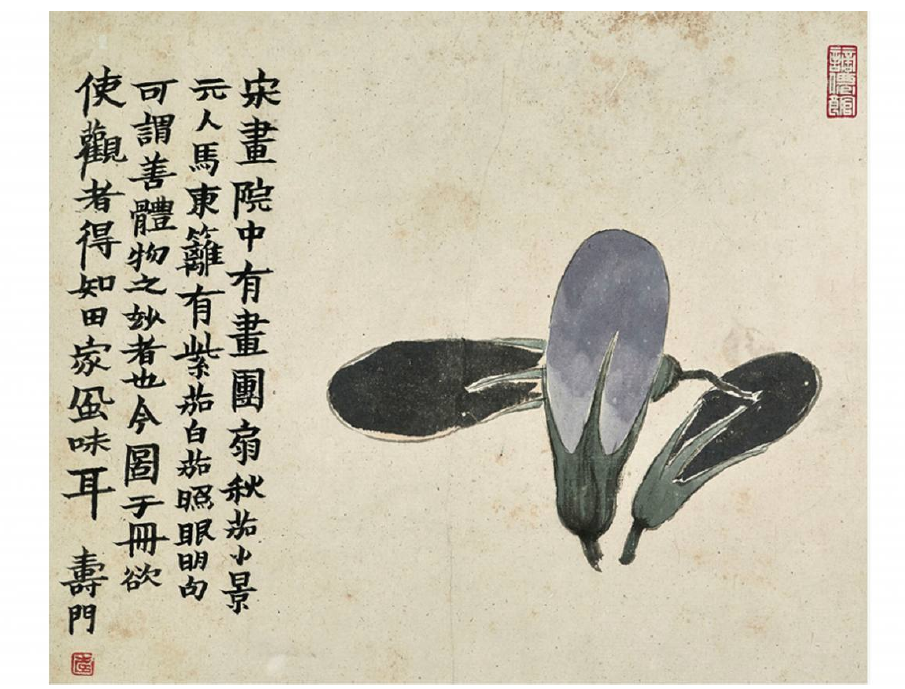 宋畫院中有畫團扇秋茄小景
元人馬東籬有紫茄白茄照眼明句
可謂善體物之玅者也今圖于冊欲
使觀者得知田家風味耳 壽門